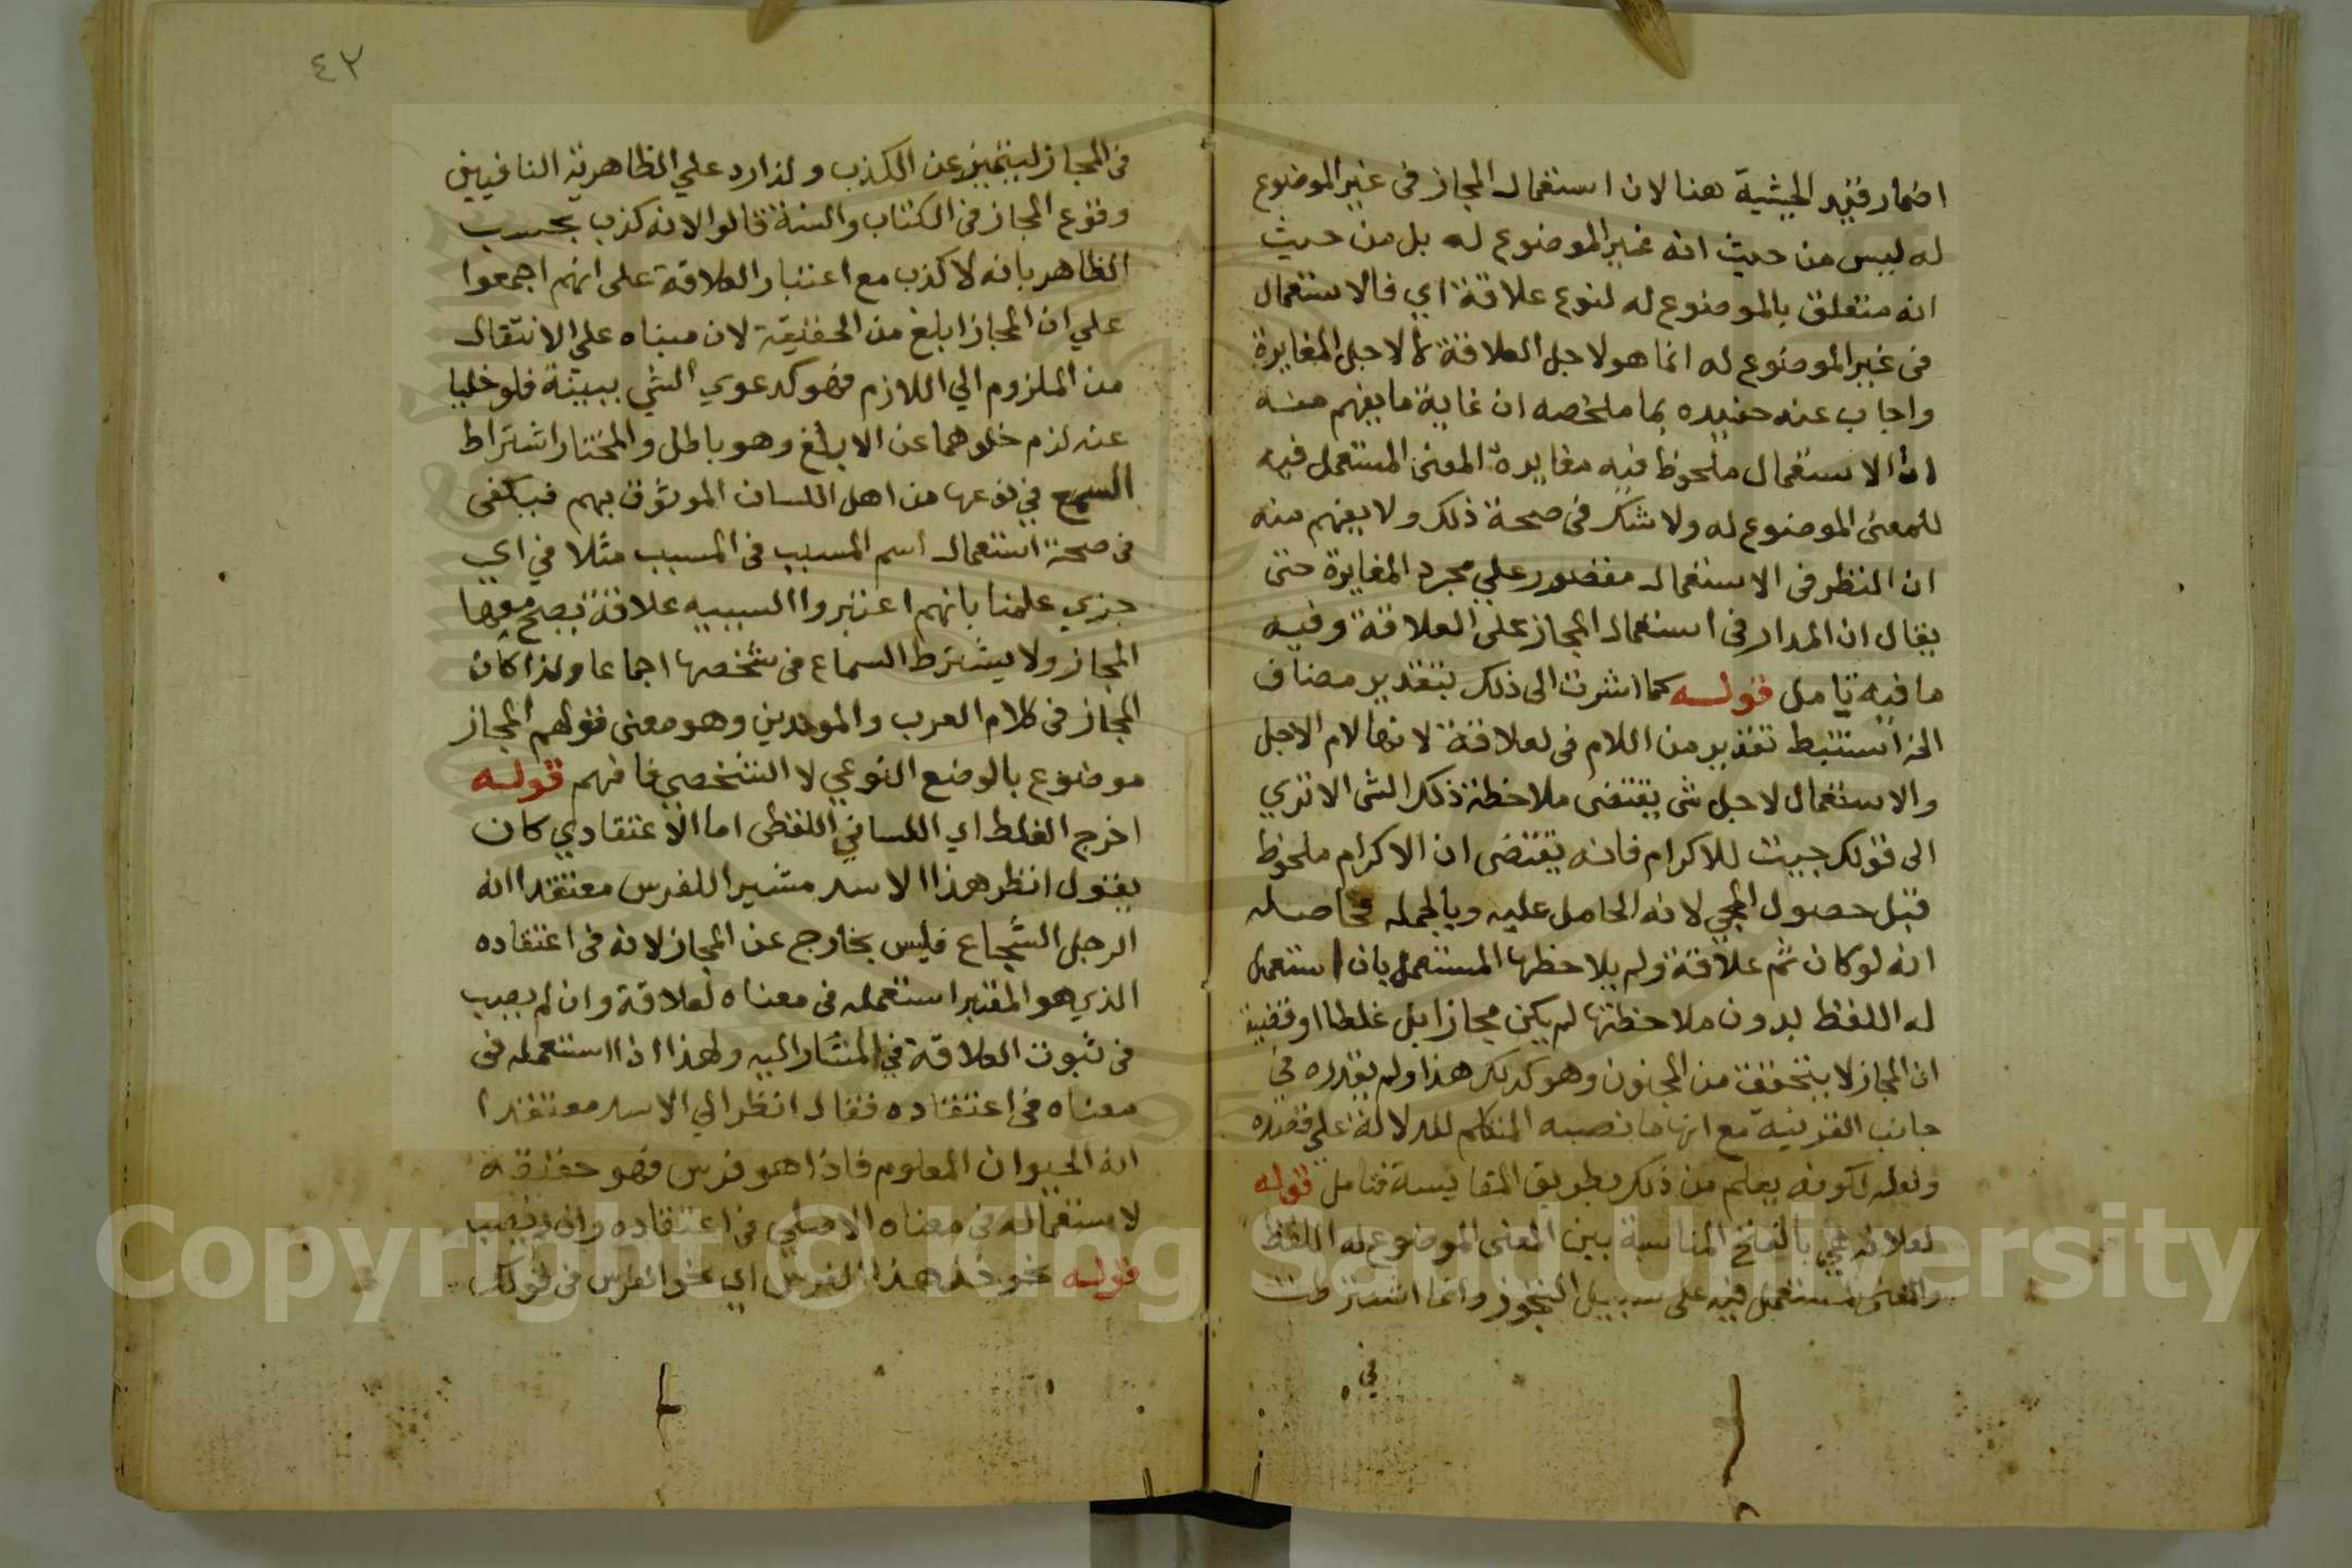 اضمار قيد الحيثية هنا لان استعمال المجاز فى غير الموضوع
له ليس من حيث انه غير الموضوع له بل من حيث
انه متعلق بالموضوع له لنوع علاقة اي فالاستعمال
فى غير الموضوع له انما هو لاجل العلاقة لا لاجل المغايرة
واجاب عنه حفيده بما ملخصه ان غاية ما يفهم منه
ان الاستعمال ملحوظ فيه مغايرة المعنى المستعمل فيه
للمعنى الموضوع له ولا شك فى صحة ذلك ولا يفهم منه
ان النظر فى الاستعمال مقصور علي مجرد المغايرة حتى
يقال ان المدار فى استعمال المجاز على العلاقة وفيه
ما فيه تامل قوله كما اشرت الى ذلك بتقدير مضاف
الخ استنبط تقدير من اللام فى لعلاقة لانها لام الاجل
والاستعمال لاجل شى يقتضى ملاحظة ذلك الشى الا تري
الى قولك جيت للاكرام فانه يقتضى ان الاكرام ملحوظ
قبل حصول المجي لانه الحامل عليه وبالجمله فحاصله
انه لو كان ثم علاقة ولم يلاحظها المستعمل بان استعمل
له اللفظ بدون ملاحظتها لم يكن مجازا بل غلطا او قضية
ان المجاز لا يتحقق من المجنون وهو كذلك هذا ولم يقدره في
جانب القرنية مع انها ما نصبه المتكلم للدلالة علي قصده
ولعله لكونه يعلم من ذلك بطريق المقايسة فتامل قوله
لعلاقه هي بالفتح المناسبة بين المعنى الموضوع له اللفظ
والمعنى المستعمل فيه على سبيل التجوز وانما اشترطت
في
٤٣
فى المجاز ليتميز عن الكذب ولذا رد علي الظاهرية النافيين
وقوع المجاز فى الكتاب والسنة قالوا لانه كذب بحسب
الظاهر بانه لا كذب مع اعتبار العلاقة على انهم اجمعوا
علي ان المجاز ابلغ من الحقيقة لان مبناه علي الانتقال
من الملزوم الي اللازم فهو كدعوي الشي ببينة فلو خليا
عنه لزم خلوهما عن الابلغ وهو باطل والمختار اشتراط
السمع في نوعها من اهل اللسان الموثوق بهم فيكفى
فى صحة استعمال اسم السبب فى المسبب مثلا في اي
جزي علمنا بانهم اعتبروا السببيه علاقة يصح معها
المجاز ولا يشترط السماع فى شخصها اجماعا ولذا كان
المجاز فى كلام العرب والمولدين وهو معنى قولهم المجاز
موضوع بالوضع النوعي لا الشخصي فافهم قوله
اخرج الغلط اي اللساني اللفظى اما الاعتقادي كان
يقول انظر هذا الاسد مشيرا للفرس معتقدا انه
الرجل الشجاع فليس بخارج عن المجاز لانه فى اعتقاده
الذي هو المعتبر استعمله فى معناه لعلاقة وان لم يصب
فى ثبوت العلاقة في المشار اليه ولهذا اذا استعمله فى
معناه فى اعتقاده فقال انظر الي الاسد معتقدا
انه الحيوان المعلوم فاذا هو فرس فهو حقيقة
لاستعماله فى معناه الاصلي فى اعتقاده وان لم يصب
قوله نحو خذ هذا الفرس اي نحو الفرس فى قولك
Copyright © King Saud University